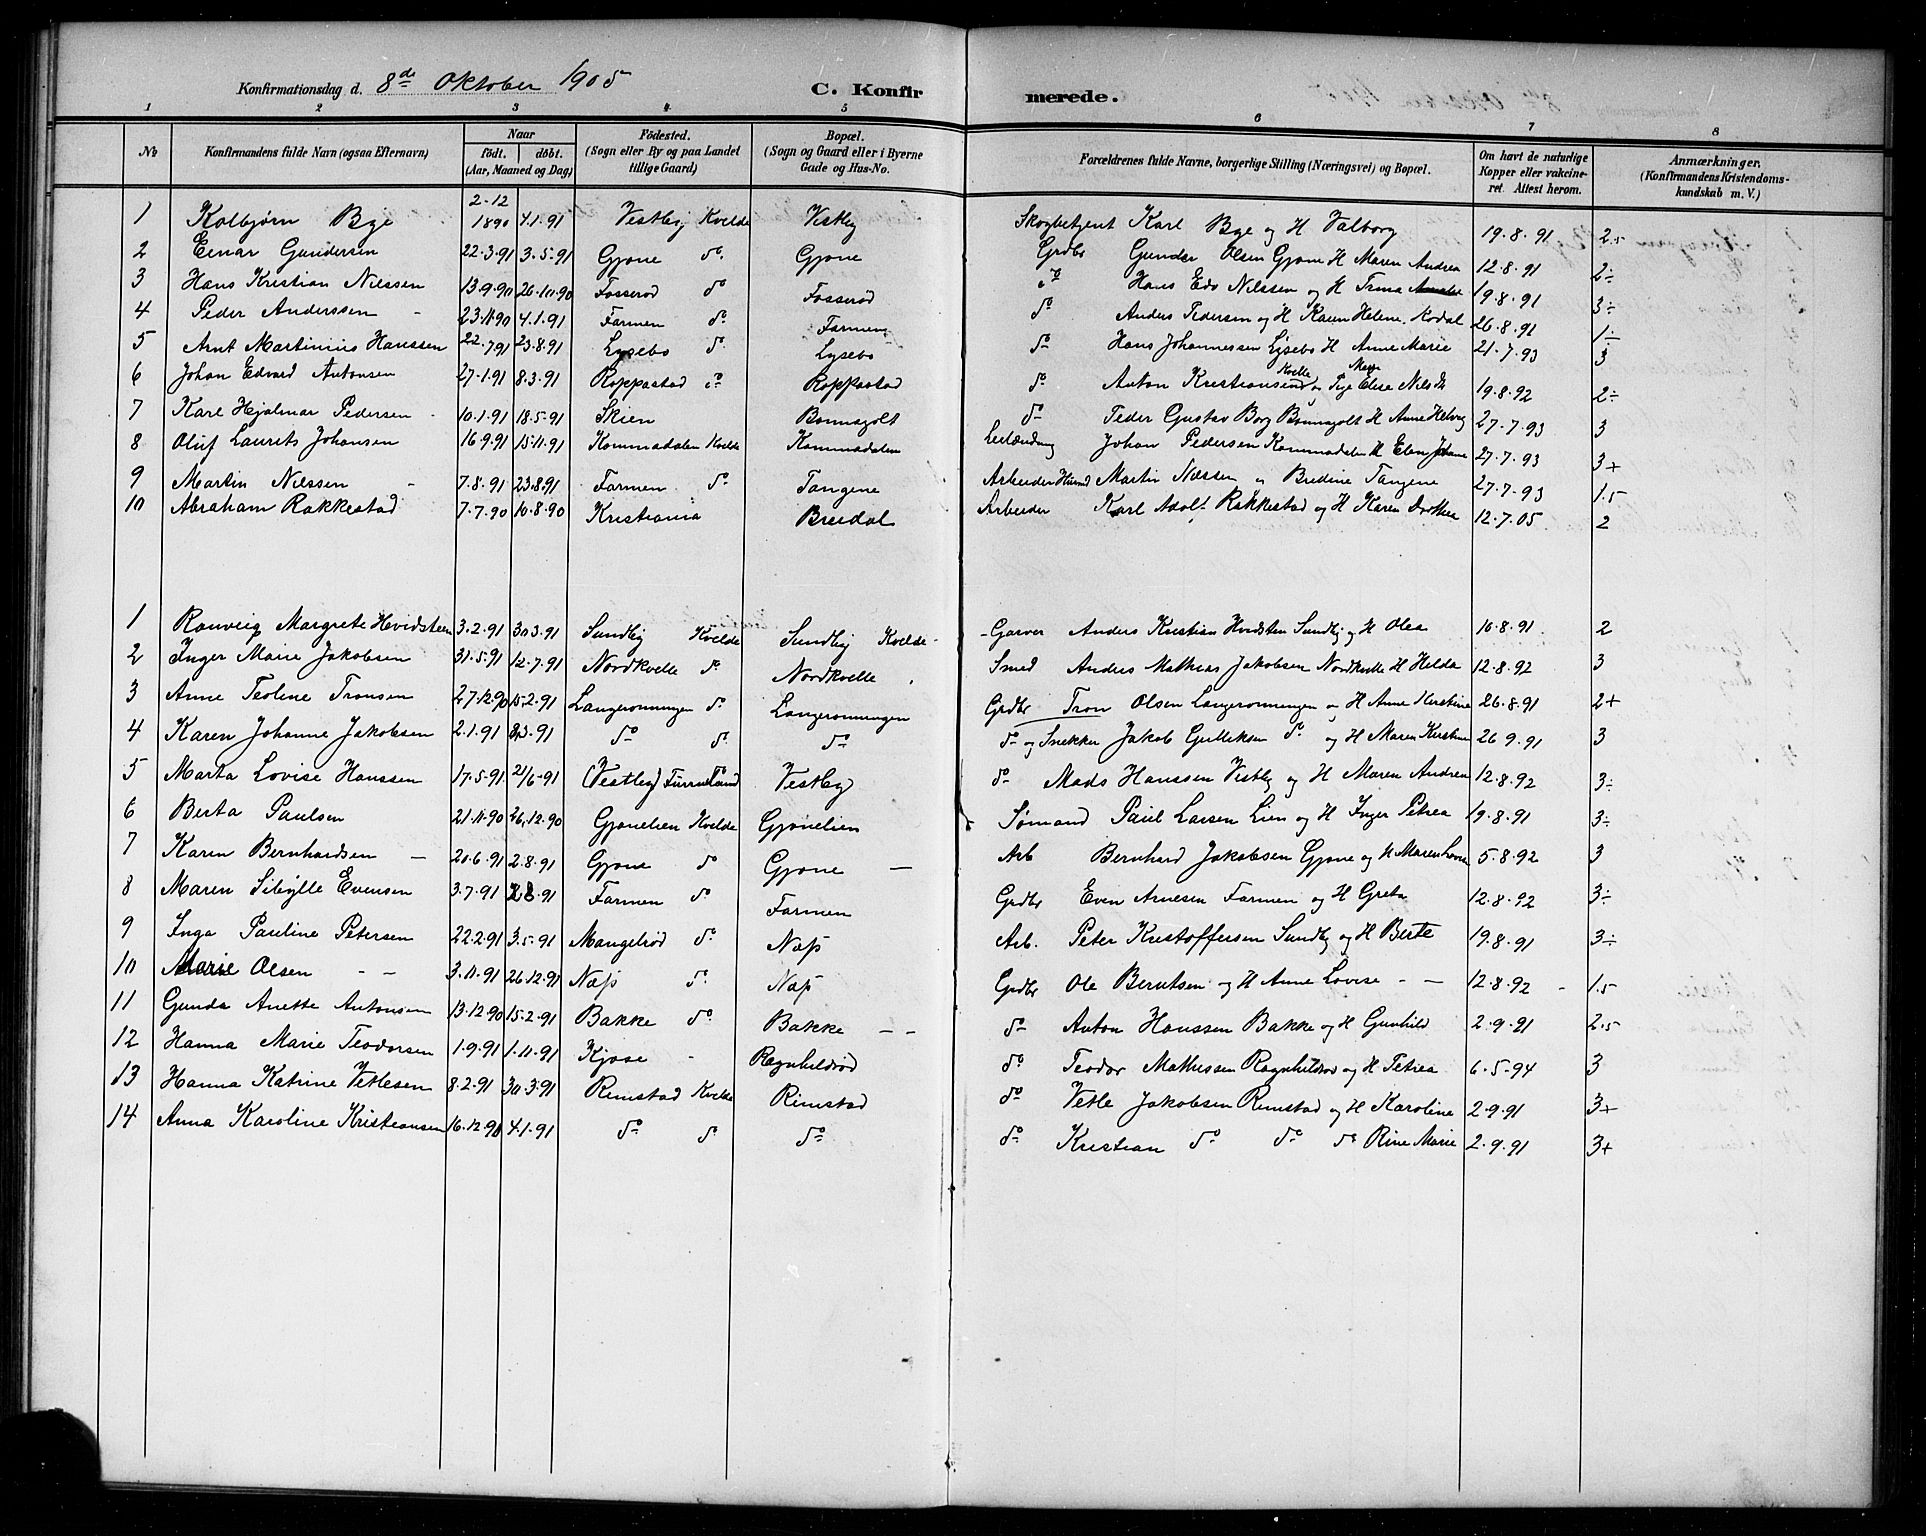 Konfirmationsdag d. 8de Oktober 1905 C. Konfirmerede.
1 2 3 4 5 6 7 8
No Konfirmandens fulde Navn (ogsaa Efternavn) Naar födt. döbt. (Aar, Maaned og Dag) Födested. (Sogn eller By og paa Landet tillige Gaard) Bopæl. (Sogn og Gaard eller i Byerne Gade og Hus-No. Forældrenes fulde Navne, borgerlige Stilling (Næringsvei) og Bopæl. Om havt de naturlige Kopper eller vakcineret. Attest herom. Anmærkninger. (Konfirmandens Kristendomskundskab m. V.)
1 Kolbjørn Bye 2-12 1890 4.1.91 Vestby Kvelde Vestby Skogbetjent Karl Bye og H Valborg 19.8.91 2.5
2 Einar Gundersen 22.3.91 3.5.91 Gjone do Gjone Grdbr Gunder Olsen Gjone H Maren Andrea 12.8.91 2÷
3 Hans Kristian Nilssen 13.9.90 26.10.90 Fosserød do Fosserød do Hans Edv Nilssen og H Trina 19.8.91 3÷
4 Peder Anderssen - 23.11.90 4.1.91 Farmen do Farmen do Anders Pedersen og H Karen Helene. Kodal 26.8.91 1÷
5 Arnt Martinius Hanssen 22.7.91 23.8.91 Lysebo do Lysebo do Hans Johannessen Lysebo H Anne Marie 21.7.93 3
6 Johan Edvard Antonsen 27.1.91 8.3.91 Roppastad do Roppastad do Anton Kristiansen Kvelle Elise Nilsdt 19.8.92 2÷
7 Karl Hjalmar Pedersen - 10.1.91 18.5.91 Skien Bonnagolt do Peder Gustav Borg Bonnagolt H Anne Helvig 27.7.93 3
8 Oluf Laurits Johansen 16.9.91 15.11.91 Kommadalen Kvelde Kommadalen Leilænding Johan Pedersen Kommadalen H Elen Johanne 27.7.93 3+
9 Martin Nilssen - 7.8.91 23.8.91 Farmen do Tangene Arbeider Husmd Martin Nilssen og Bredine Tangene 27.7.93 1.5
10 Abraham Rakkestad 7.7.90 10.8.90 Kristiania Breidal Arbeider Karl Adolf Rakkestad og H Karen Dorthea 12.7.05 2
1 Ranveig Margrete Hevidsteen 3.2.91 30.3.91 Sundby Kvelde Sundby Kvelde - Garver Anders Kristian Hvidsten Sundby og H Olea 10.8.91 2
2 Inger Marie Jakobsen 31.5.91 12.7.91 Nordkvelle do Nordkvelle Smed Anders Mathias Jakobsen Nordkvelle H Helda 12.8.92 3
3 Anne Teoline Tronsen 27.12.90 15.2.91 Langeronningen do Langeronningen Grdbr Tron Olsen Langeronningen og H Anne Kirstine 26.8.91 2+
4 Karen Johanne Jakobsen 2.1.91 8.3.91 do do do do og Snekker Jakob Gulleksen do og H Maren Kirstine 26.9.91 3
5 Marta Lovise Hanssen 17.5.91 21/6-91 (Vestby) Furruland do Vestby do Mads Hanssen Vestby og H Maren Andrea 12.8.92 3÷
6 Berta Paulsen 21.11.90 26.12.90 Gjonelien Kvelde Gjonelien Sømand Paul Larsen Lien og H Inger Petrea 19.8.91 3÷
7 Karen Bernhardsen - 20.6.91 2.8.91 Gjone do Gjone - Arb Bernhard Jakobsen Gjone og H Maren Lovise 5.8.92 3
8 Maren Sibylle Evensen 3.7.91 2.8.91 Farmen do Farmen Grdbr Even Arnesen Farmen og H Greta 12.8.92 3÷
9 Inga Pauline Petersen 22.2.91 3.5.91 Mangelrød do Næs Arb. Peter Kristoffersen Sundby og H Berte 19.8.91 3÷
10 Marie Olsen - - 3.11.91 26.12.91 Næs do Næs Grdbr Ole Berntsen og H Anne Lovise - - 12.8.92 - 1.5
11 Gunda Anette Antonsen 13.12.90 15.2.91 Bakke do Bakke - - do Anton Hanssen Bakke og H Gunhild 2.9.91 2.5
12 Hanna Marie Teodorsen 1.9.91 1.11.91 Kjose - Ragnhildrød do Teodor Mathissen Ragnhildrød og H Petrea 6.5.94 3
13 Hanna Katrine Vetlesen 8.2.91 30.3.91 Rimstad Kvelde Rimstad do Vetle Jakobsen Rimstad og H Karoline 2.9.91 3+
14 Anna Karoline Kristiansen 16.12.90 4.1.91 do do do do Kristian do do do Rine Marie 2.9.91 3+